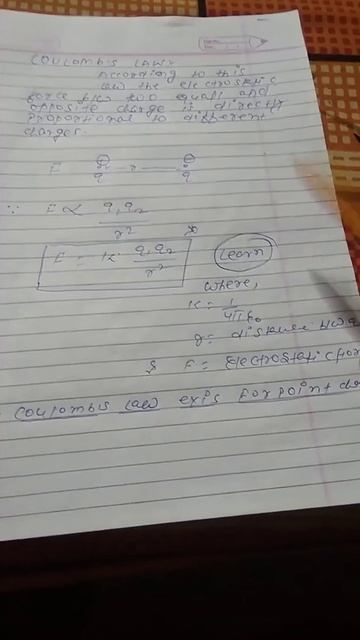 COULOMB'S LAW:-
According to this
law the electrostatic
force b/w two equall and
opposite charge is directly
proportional to different
charges.
F q r q
∵ F ∝ q1q2 / r²
F = K q1q2 / r²
Learn
where,
K = 1 / 4π ε0
r = distance b/w
& F = Electrostatic for
COULOMB'S LAW exis for point